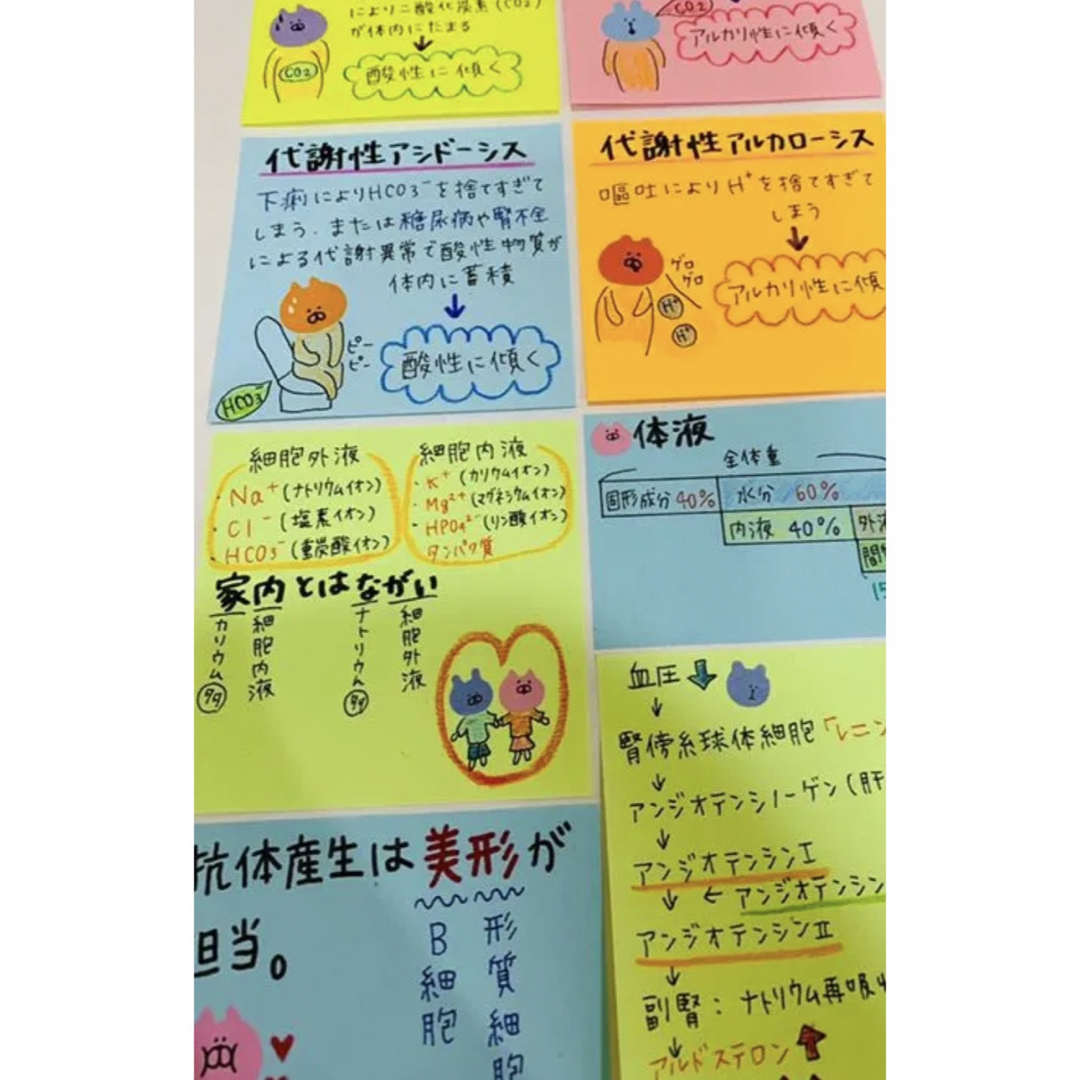 により二酸化炭素(CO2)
が体内にたまる
↓
CO2
酸性に傾く
CO2
アルカリ性に傾く
代謝性アシドーシス
下痢によりHCO3⁻を捨てすぎて
しまう. または糖尿病や腎不全
による代謝異常で酸性物質が
体内に蓄積
↓
ピー
ピー
酸性に傾く
HCO3⁻
代謝性アルカローシス
嘔吐によりH⁺を捨てすぎて
しまう
↓
ゲロ
ゲロ
H⁺
H⁺
アルカリ性に傾
細胞外液
・Na⁺(ナトリウムイオン)
・Cl⁻(塩素イオン)
・HCO3⁻(重炭酸イオン)
細胞内液
・K⁺(カリウムイオン)
・Mg²⁺(マグネシウムイオン)
・HPO4²⁻(リン酸イオン)
タンパク質
家内とはながい
カリウム多
細胞内液
ナトリウム多
細胞外液
体液
全体重
固形成分40% 水分 60%
内液 40% 外液
間
15
血圧↓
↓
腎傍糸球体細胞「レニン
↓
アンジオテンシノーゲン(肝
↓
アンジオテンシンⅠ
↓ ← アンジオテンシン
アンジオテンシンⅡ
↓
副腎:ナトリウム再吸収
↓
アルドステロン↑
抗体産生は美形が
担当。
B細胞
形質細胞